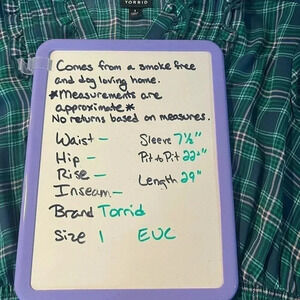 TORRID
Comes from a smoke free
and dog loving home.
*Measurements are
approximate*
No returns based on measures.
Waist -
Hip -
Rise -
Inseam -
Sleeve 7½"
Pit to Pit 22½"
Length 29"
Brand Torrid
Size 1 EUC